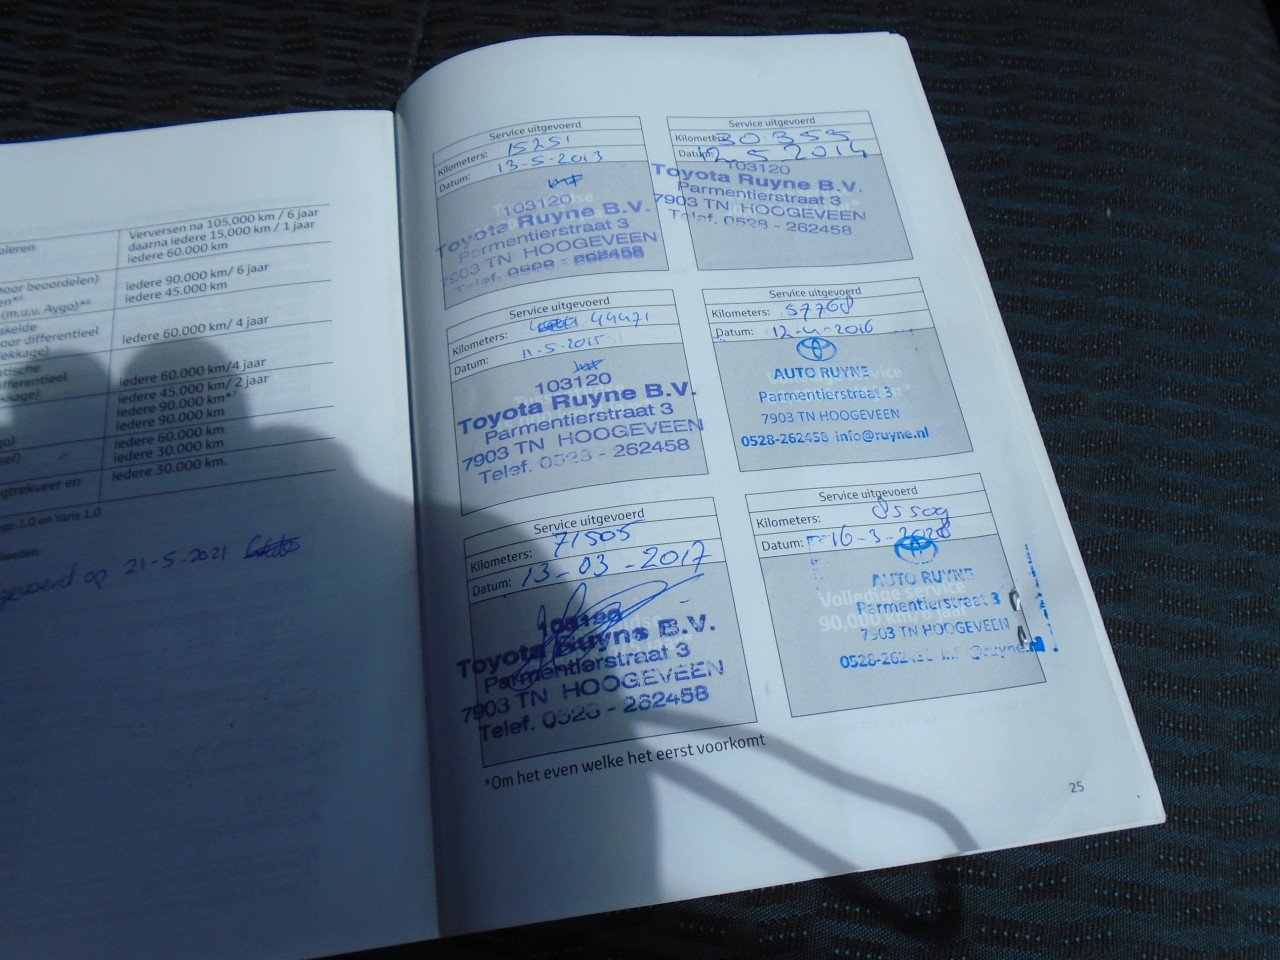 oleren
Verversen na 105,000 km / 6 jaar
daarna iedere 15,000 km / 1 jaar
iedere 60.000 km
oor beoordelen)
iedere 90.000 km/ 6 jaar
iedere 45.000 km
(m.u.v. Aygo)
akelde
oor differentieel
lekkage)
iedere 60.000 km/ 4 jaar
atische
ifferentieel
kkage)
iedere 60.000 km/4 jaar
iedere 45.000 km/ 2 jaar
iedere 90.000 km*
iedere 90.000 km
iedere 60.000 km
iedere 30.000 km
gtrekveer en
iedere 30.000 km.
1.0 en Yaris 1.0
op 21-5-2021
Service uitgevoerd
Kilometers: 15251
Datum: 13-5-2013
103120
Toyota Ruyne B.V.
Parmentierstraat 3
7903 TN HOOGEVEEN
Telef. 0528 - 262458
Service uitgevoerd
Kilometers: 30355
Datum: 12-5-2014
103120
Toyota Ruyne B.V.
Parmentierstraat 3
7903 TN HOOGEVEEN
Telef. 0528 - 262458
Service uitgevoerd
Kilometers: 44471
Datum: 11-5-2015
103120
Toyota Ruyne B.V.
Parmentierstraat 3
7903 TN HOOGEVEEN
Telef. 0528 - 262458
Service uitgevoerd
Kilometers: 57768
Datum: 12-4-2016
AUTO RUYNE
Parmentierstraat 3
7903 TN HOOGEVEEN
0528-262458 info@ruyne.nl
Service uitgevoerd
Kilometers: 71505
Datum: 13-03-2017
103120
Toyota Ruyne B.V.
Parmentierstraat 3
7903 TN HOOGEVEEN
Telef. 0528 - 262458
Service uitgevoerd
Kilometers: 85509
Datum: 16-3-2028
AUTO RUYNE
Volledige service
Parmentierstraat 3
90,000 km/
7903 TN HOOGEVEEN
0528-262458 info@ruyne.nl
*Om het even welke het eerst voorkomt
25